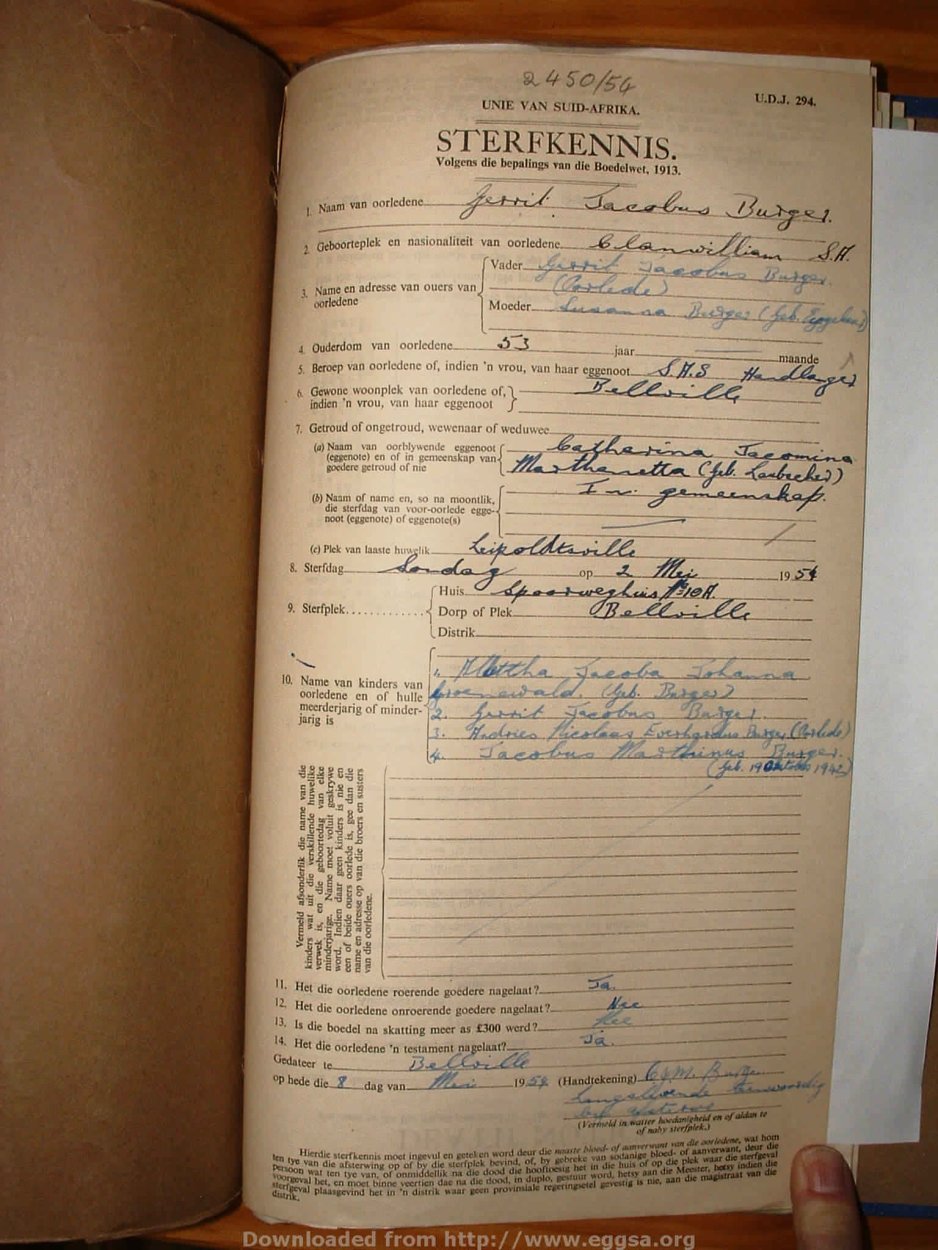 2450/54
U.D.J. 294.
UNIE VAN SUID-AFRIKA.
STERFKENNIS.
Volgens die bepalings van die Boedelwet, 1913.
1. Naam van oorledene Gerrit Jacobus Burger.
2. Geboorteplek en nasionaliteit van oorledene Clanwilliam S.A.
3. Name en adresse van ouers van oorledene
Vader Gerrit Jacobus Burger
(Oorlede)
Moeder Susanna Burger (Geb.
4. Ouderdom van oorledene 53 jaar maande
5. Beroep van oorledene of, indien 'n vrou, van haar eggenoot S.A.S Handlanger
6. Gewone woonplek van oorledene of, indien 'n vrou, van haar eggenoot Bellville
7. Getroud of ongetroud, wewenaar of weduwee
(a) Naam van oorblywende eggenoot (eggenote) en of in gemeenskap van goedere getroud of nie
Catharina Jacomina
Marthanetta (Geb. Laubscher)
(b) Naam of name en, so na moontlik, die sterfdag van voor-oorlede eggenoot (eggenote) of eggenote(s)
In gemeenskap.
(c) Plek van laaste huwelik Leipoldtville
8. Sterfdag Sondag op 2 Mei 1954
9. Sterfplek
Huis Spoorweghuis No 10A.
Dorp of Plek Bellville
Distrik
10. Name van kinders van oorledene en of hulle meerderjarig of minderjarig is
1. Alettha Jacoba Johanna
Groenewald. (Geb. Burger)
2. Gerrit Jacobus Burger.
3. Andries Nicolaas Everhardus Burger (Oorlede)
4. Jacobus Marthinus Burger.
(Geb. 19 Oktober 1942)
Vermeld afsonderlik die name van die
kinders wat uit die verskillende huwelike
verwek is, en die geboortedag van elke
minderjarige. Name moet voluit geskrywe
word. Indien daar geen kinders is nie en
een of beide ouers oorlede is, gee dan die
name en adresse op van die broers en susters
van die oorledene.
11. Het die oorledene roerende goedere nagelaat? Ja.
12. Het die oorledene onroerende goedere nagelaat? Nee
13. Is die boedel na skatting meer as £300 werd? Nee
14. Het die oorledene 'n testament nagelaat? Ja.
Gedateer te Bellville
op hede die 8 dag van Mei 1954 (Handtekening) C.J.M. Burger
Langslewende teenwoordig
by afsterwe
(Vermeld in watter hoedanigheid en of aldan te
of naby sterfplek.)
Hierdie sterfkennis moet ingevul en geteken word deur die naaste bloed- of aanverwant van die oorledene, wat hom
ten tye van die afsterwing op of by die sterfplek bevind, of, by gebreke van sodanige bloed- of aanverwant, deur die
persoon wat ten tye van, of onmiddellik na die dood die hooftoesig het in die huis of op die plek waar die sterfgeval
voorgeval het, en moet binne veertien dae na die dood, in duplo, gestuur word, hetsy aan die Meester, hetsy indien die
sterfgeval plaasgevind het in 'n distrik waar geen provinsiale regeringsetel gevestig is nie, aan die magistraat van die
distrik.
Downloaded from http://www.eggsa.org